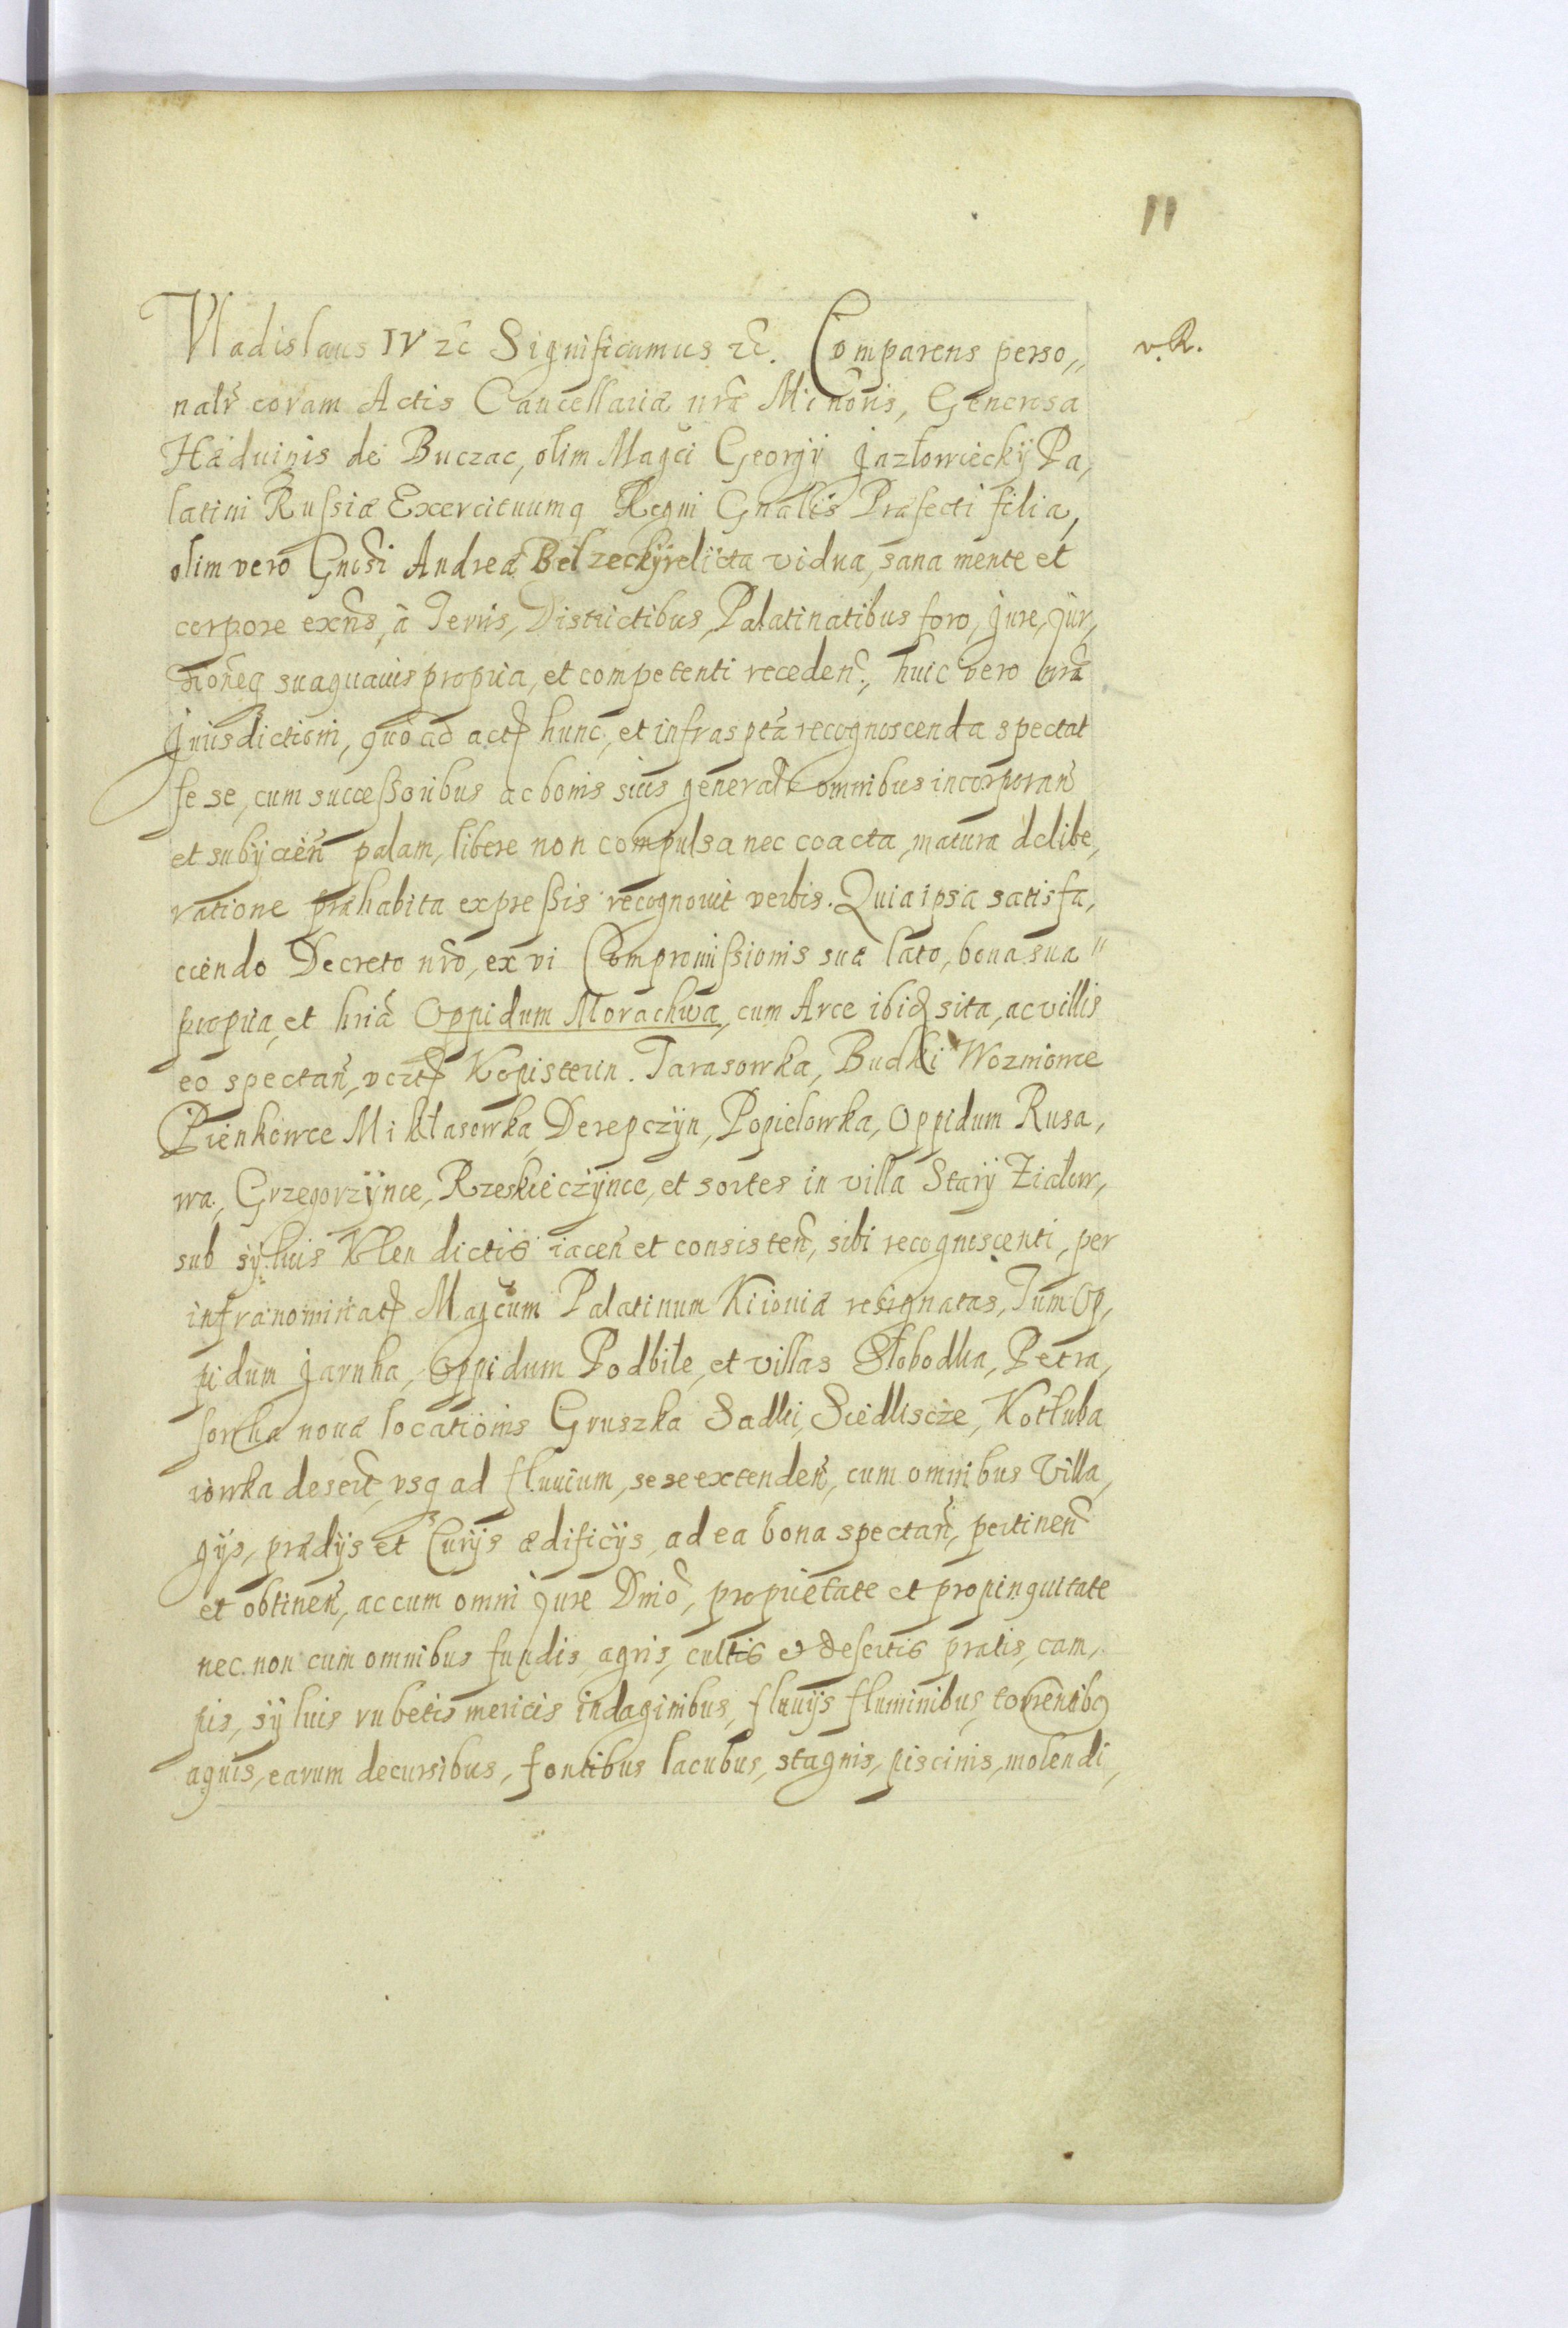 11
Vladislaus IV zc̃ Significamus zc̃. Comparens perso„
v. R.
nalr̃ coram Actis Cancellariæ nr̃æ Minoris, Generosa
Hæduigis de Buczac, olim Magci Georgÿ Jazłowieckÿ Pa,
latini Rußiæ Exercituumq Regni Gnãlis Præfecti filia,
olim vero Gnosi Andreæ Belzeckÿ relicta vidua, sana mente et
corpore exñs, à Terris, Districtibus, Palatinatibus foro, Jure, Jur,
tioneq sua quauis propria, et competenti receden̄, huic vero nr̃æ
Jurisdictioni, quo ad act̃ hunc, et infrasptã recognoscenda spectat
se se, cum succeßoribus ac bonis suis generalr̃ omnibus incorporan̄
et subÿcien̄ palam, libere non compulsa nec coacta, matura delibe,
ratione præhabita expreßis recognouit verbis. Quia ipsa satisfa,
ciendo Decreto nr̃o, ex vi Compromißionis suæ lato, bona sua"
propria, et hriã Oppidum Morachwa, cum Arce ibid̃ sita, ac villis
eo spectan̄, vczt̃ Kopisterin. Tarasowka, Budki Wozniowce
Pienkowce Mikłasowka, Derepczÿn, Popielowka, Oppidum Rusa,
wa, Grzegorzÿnce, Rzeskieczÿnce, et sortes in villa Starÿ Ziałow,
sub sÿluis Klen dictis iacen̄ et consisten̄, sibi recognoscenti, per
infranominat̃ Magcum Palatinum Kiiouiæ resignatas, Tum Op,
pidum Jaruha, Oppidum Podbile, et villas Słobodka, Petra,
sowka nouæ locationis Gruszka Sadki, Siedliscze, Kotłuba
iowka desert̃, vsq ad fluuium, sese extenden̄, cum omnibus Villa,
gÿs, prædÿs et Curÿs ædificÿs, ad ea bona spectan̄, pertinen̄
et obtinen̄, ac cum omni Jure Dnio, proprietate et propinquitate
nec non cum omnibus fundis, agris, cultis et desertis pratis, cam,
pis, sÿluis rubetis mericis indaginibus, fluuÿs fluminibus, torrentibꝯ
aquis, earum decursibus, fontibus lacubus, stagnis, piscinis, molendi,